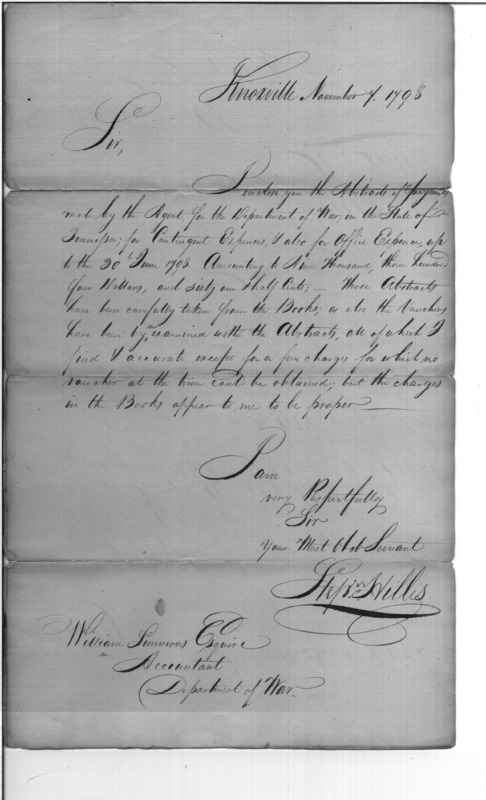 Knoxville November 7. 1798
Sir,
I inclose you the Abstracts of payments
made by the Agent, for the Department of War, in the State of
Tennessee; for Contingent Expences, & also for Office Expences, up
to the 30th June 1798. Amounting to Nine Thousand, three hundred
four Dollars, and sixty one & half Cents; — These Abstracts
have been carefully taken from the Books; as also the Vouchers
have been examined with the Abstracts, all of which I
find accurate except for a few charges for which no
voucher at the time could be obtained; but the charges
in the Books appear to me to be proper. —
I am
very Respectfully
Sir
Your Most Obd. Servant
Stepn. Hillis
William Simmons Esquire
Accountant
Department of War.